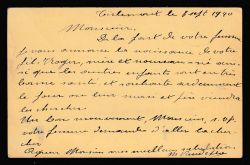 Tirlemont le 8 sept 1940
Monsieur,
De la part de votre femme
je vous annonce la naissance de votre
fils Roger, mère et nouveau-né
que les autres enfants sont en
bonne santé et souhaite ardemment
le jour où leur man et père viendra
les chercher.
Un bon mouvement, Monsieur, s.v.p.
votre femme demande d'aller la cher-
cher
Monsieur mes meilleures salutations